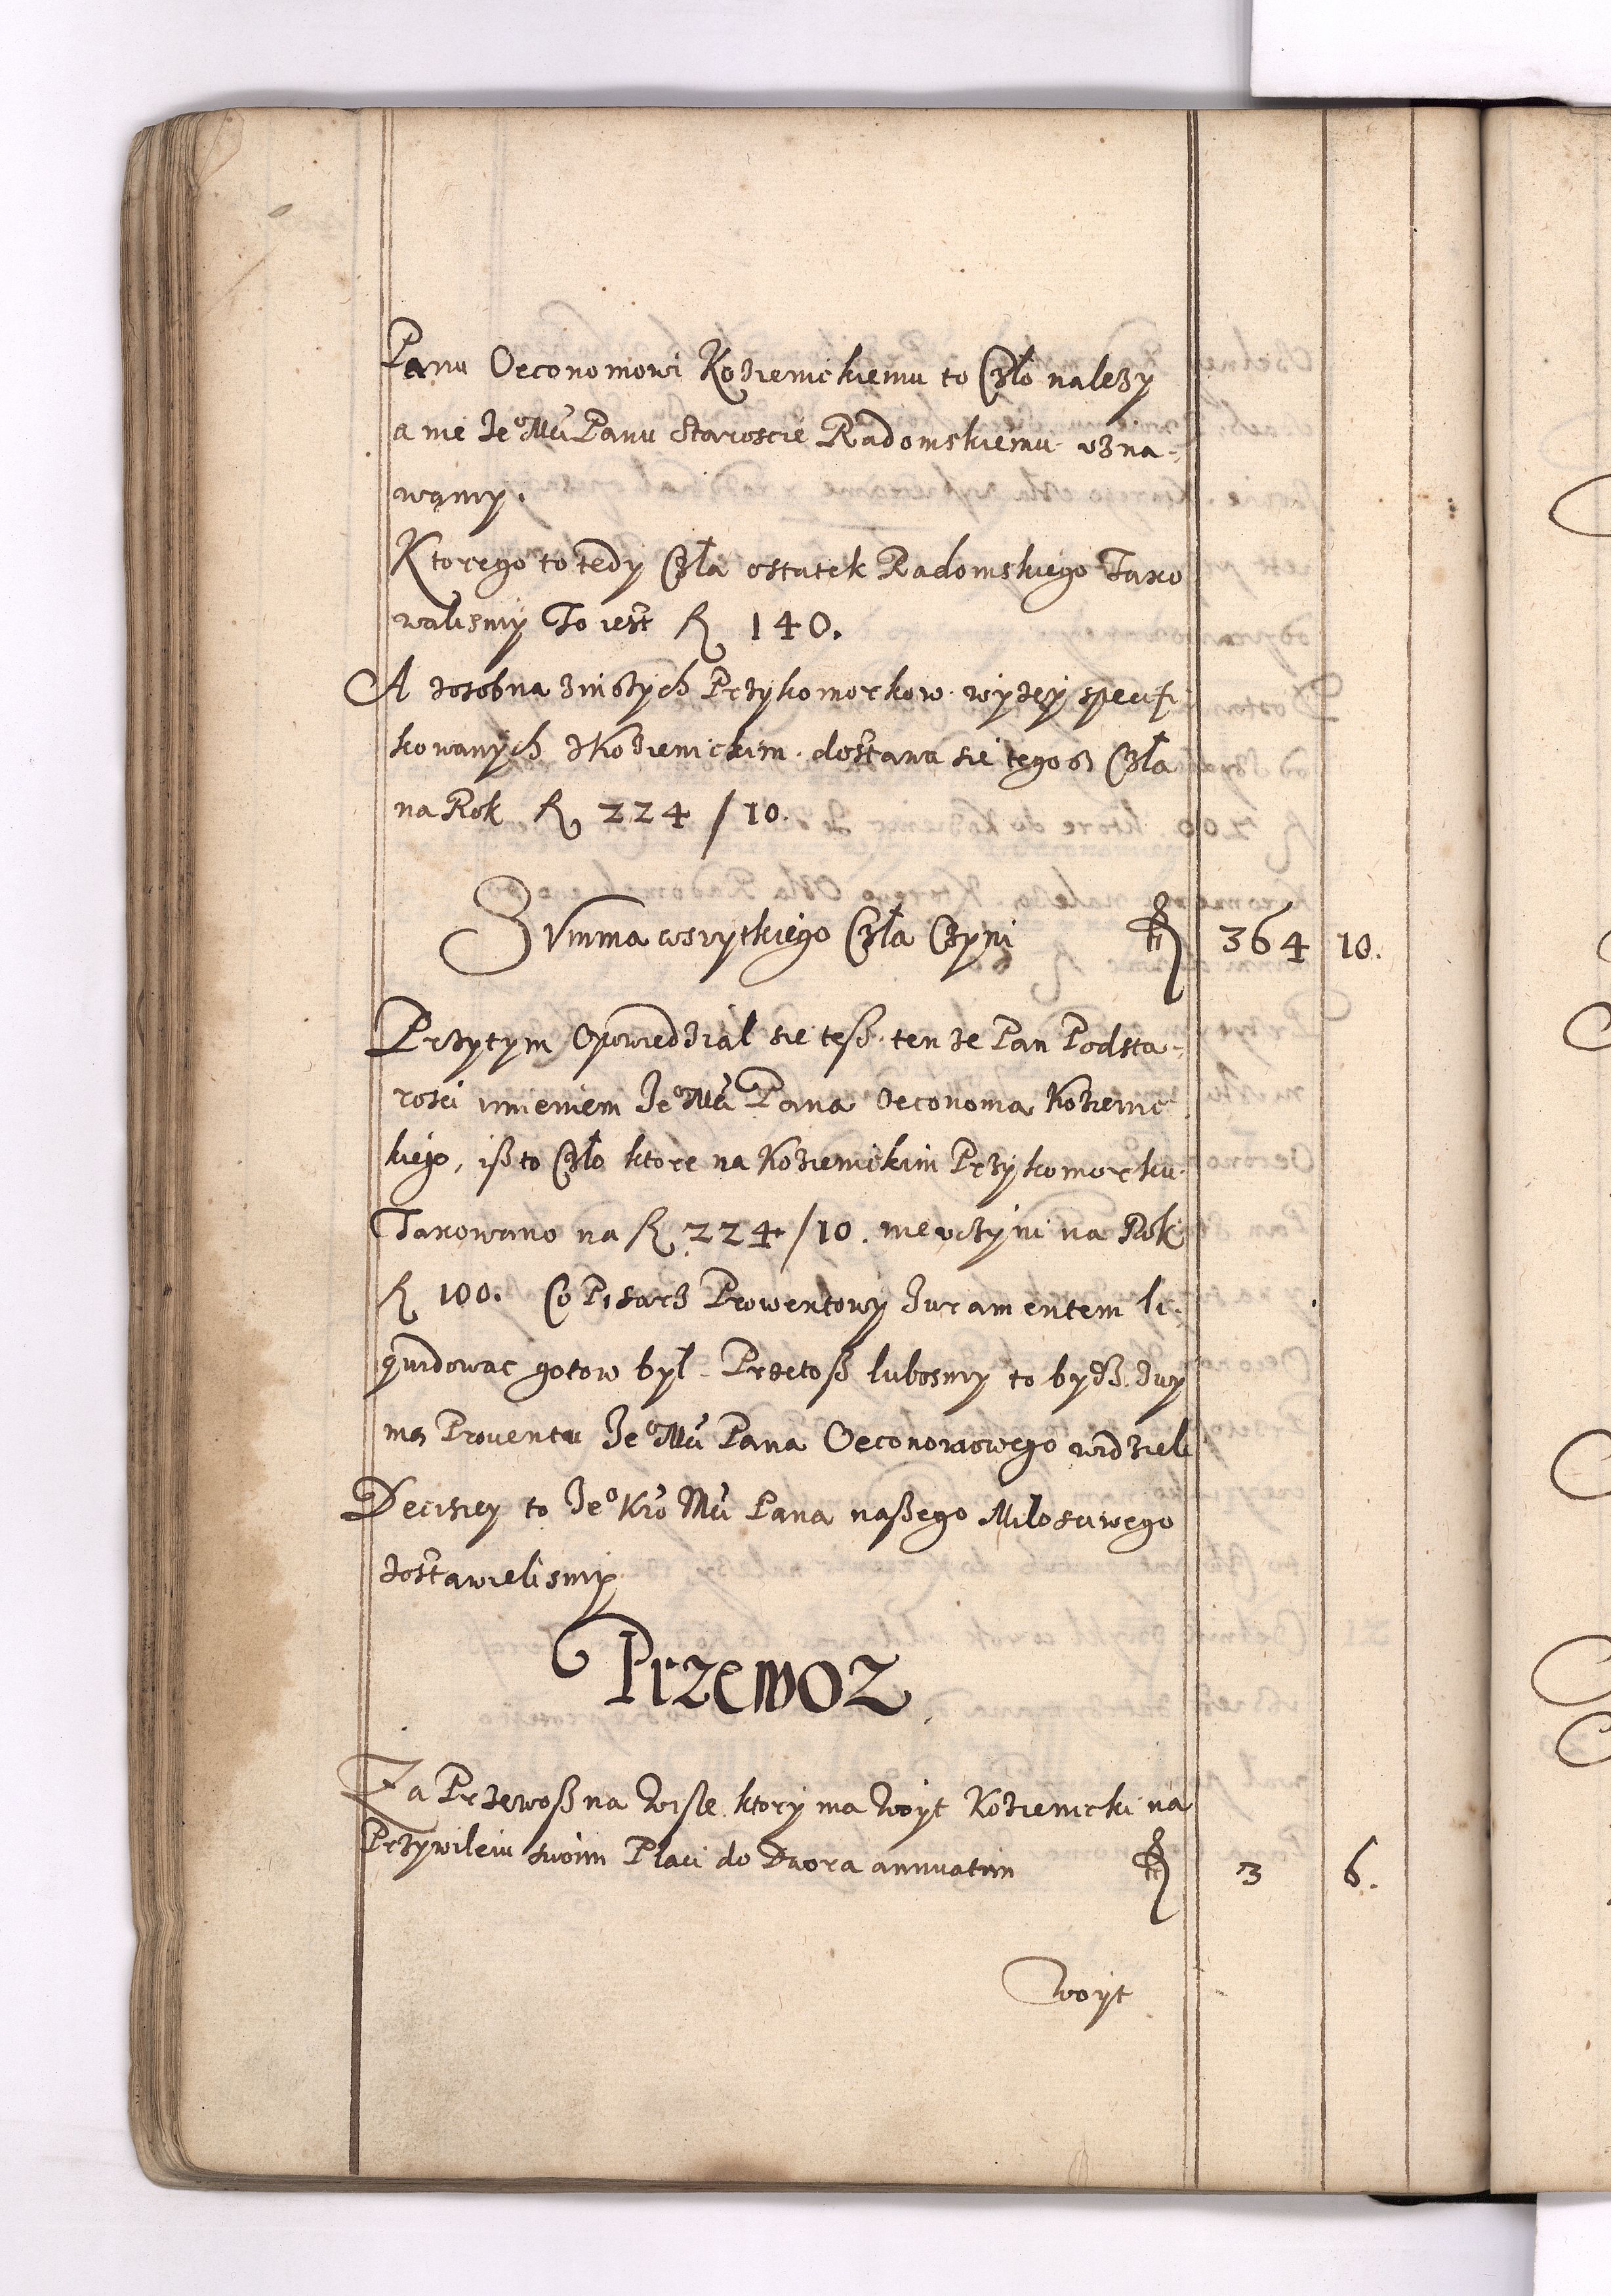 Panu Oeconomowi Kozienickiemu to Cżło należy
a nie Jeᵒ Mći Panu Staroscie Radomskiemu vzna-
wamy.
Ktorego to tedy Cżła ostatek Radomskiego Taxo
walismy To iest fl 140.
A zosobna z inszych Przykomorkow wyzey specifi
kowanych z Kozienickim dostawa sie tegosz Cżła
na Rok fl 224 / 10.
Summa wszytkiego Cżła Czyni fl 364 10.
Przytym Opowiedzial sie tesz tenze Pan Podsta-
rosci imieniem Jeᵒ Mći Pana Oeconoma Kozienic
kiego, isz to Cżło ktore na Kozienickim Przykomorku
Taxowano na fl 224 / 10. nie vczyni na Rok
fl 100. Co Pisarz Prowentowy Juramentem li-
quidowac gotow był. Przetosz lubosmy to bydz Juz
ma Prouentu Jeᵒ Mći Pana Oeconomowego widzieli
Decisiey to Jeᵒ Kró Mći Pana naszego Miłosciwego
zostawielismy
Przewoz
Za Przewosz na Wisle ktory ma Woyt Kozienicki na
Przywileiu swoim Płaci do Dwora annuatim fl 3 6.
Woyt